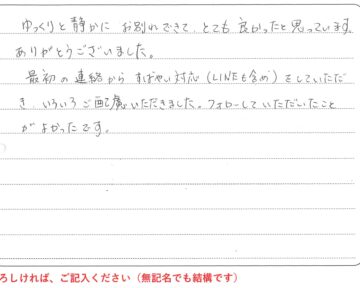 ゆっくりと静かに お別れできて、とても 良かったと思っています。
ありがとうございました。
最初の連絡から すばやい対応(LINEも含め)をしていただ
き、いろいろ ご配慮いただきました。フォローしていただいたこと
がよかったです。
ろしければ、ご記入ください(無記名でも結構です)